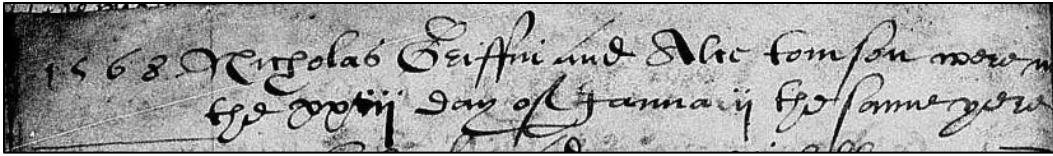 1568 Nicholas Griffin and Alce tomson were
the xxiii day of Januarii the same yere